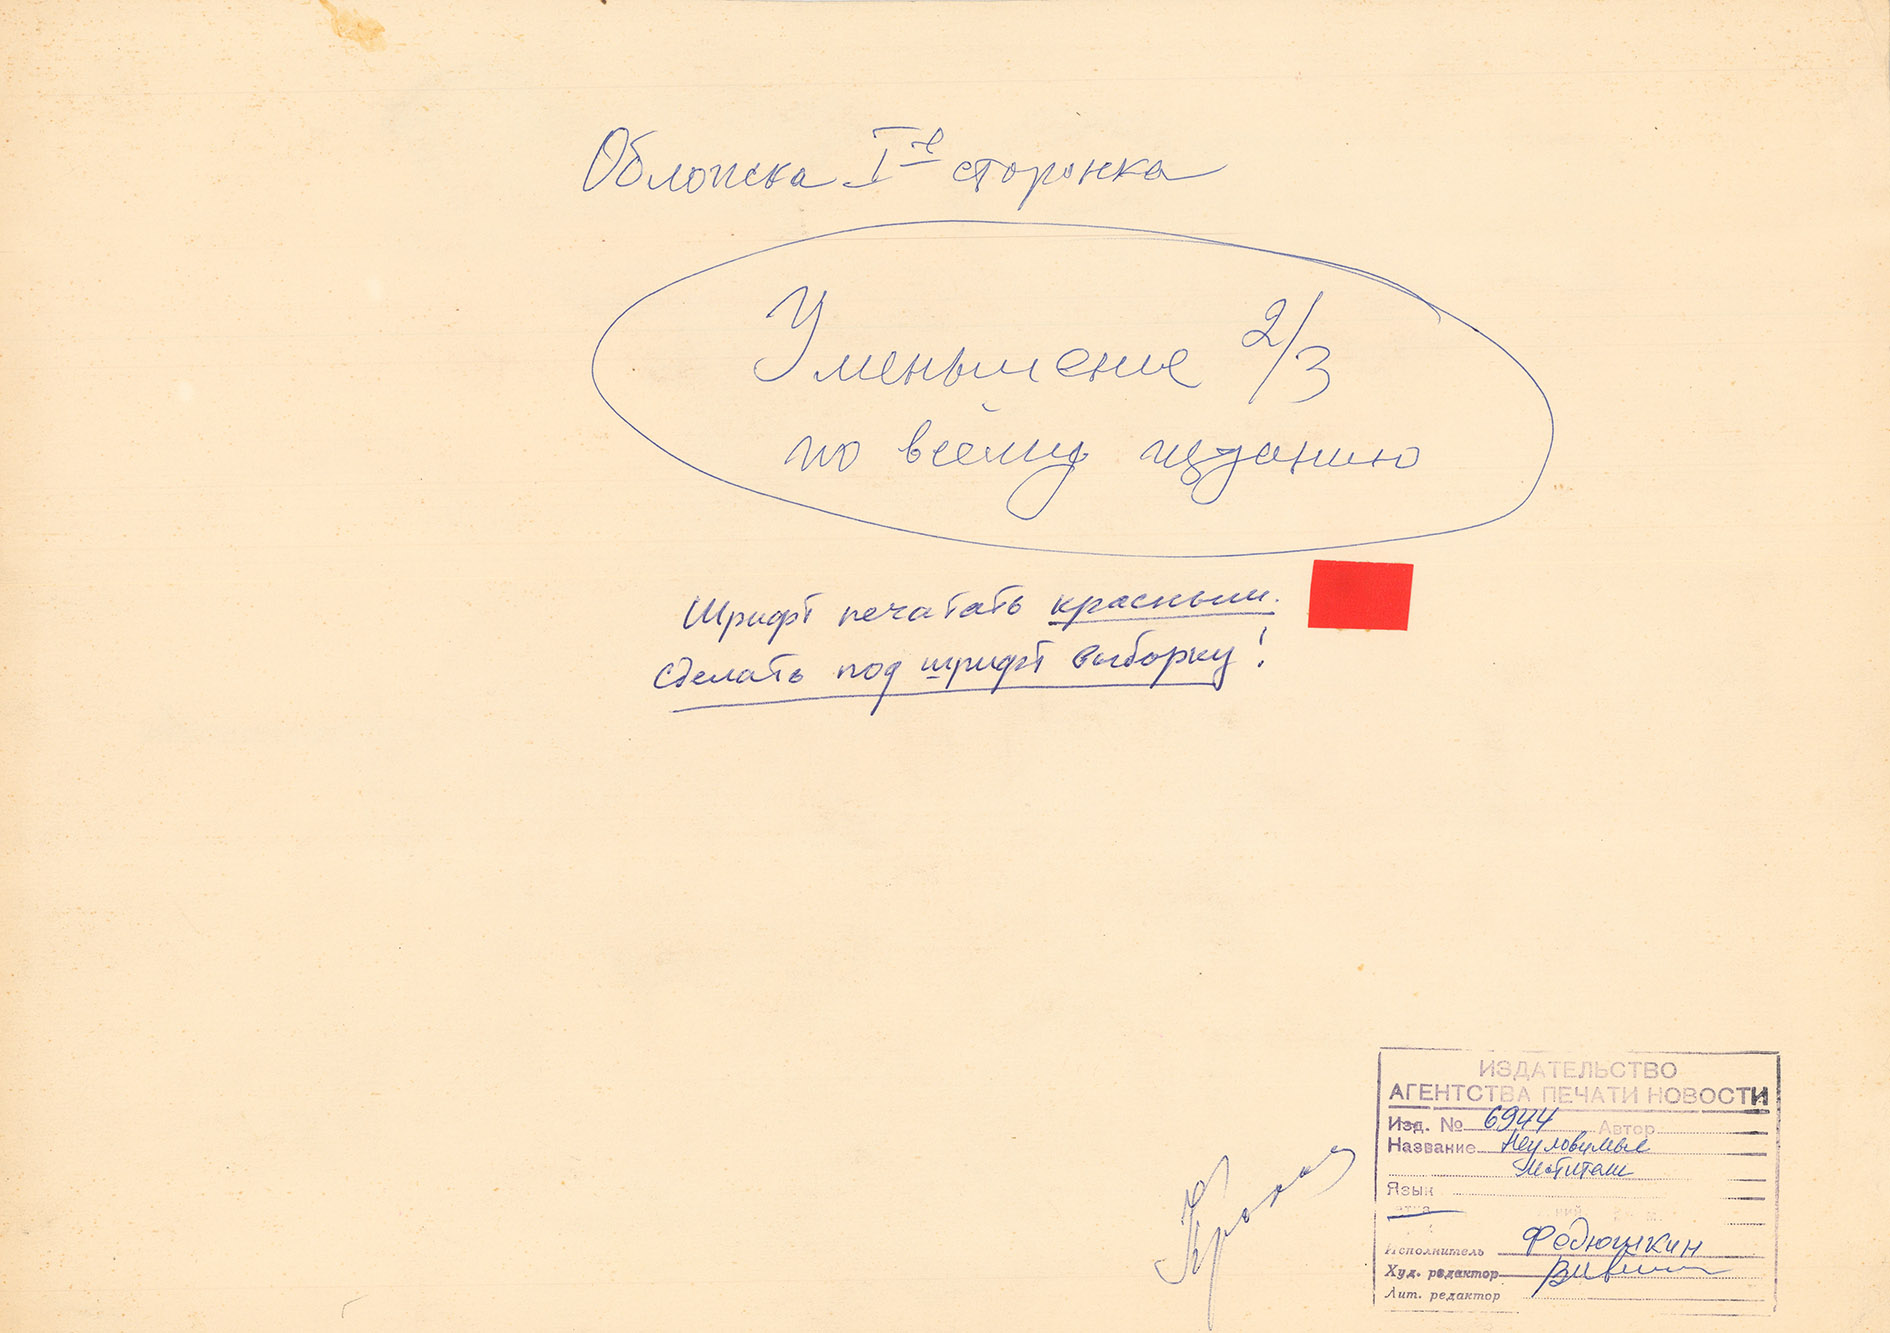 Обложка I-я сторонка
Уменьшение 2/3
по всему изданию
Шрифт печатать красным.
Сделать под шрифт выборку!
ИЗДАТЕЛЬСТВО
АГЕНТСТВА ПЕЧАТИ НОВОСТИ
Изд. № 6944 Автор
Название Неуловимые
мстители
Язык
Исполнитель Федюшкин
Худ. редактор
Лит. редактор